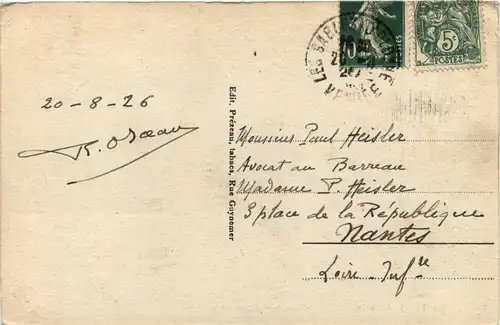 LES SABLES D'OLONNE
20
VENDÉE
5c
POSTES
20-8-26
Edit. Prézeau, tabacs, Rue Guynemer
Monsieur Paul Heisler
Avocat au Barreau
Madame P. Heisler
3 place de la République
Nantes
Loire-Infre